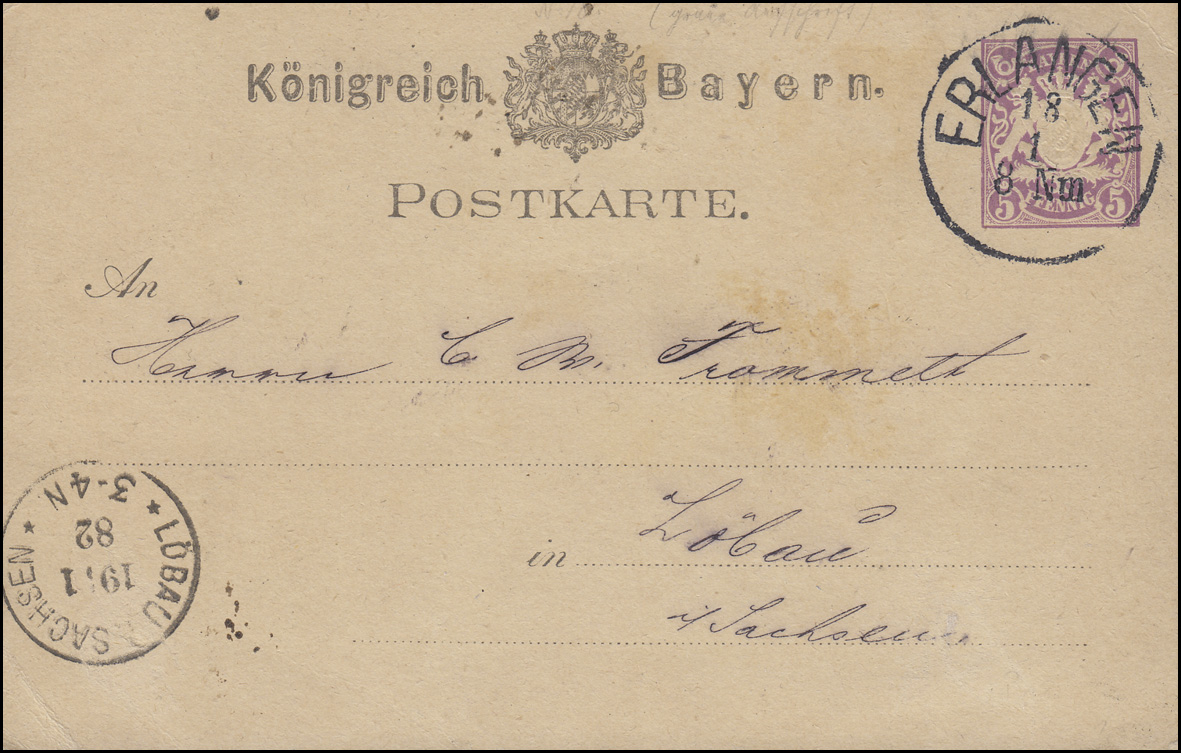 (graue Aufschrift)
Königreich Bayern.
POSTKARTE.
ERLANGEN
18
1
8 Nm
5 PFENNIG 5
An
Herrn C W. Trommelt
in Löbau
i/Sachsen
LÖBAU SACHSEN
19.1
82
3-4N